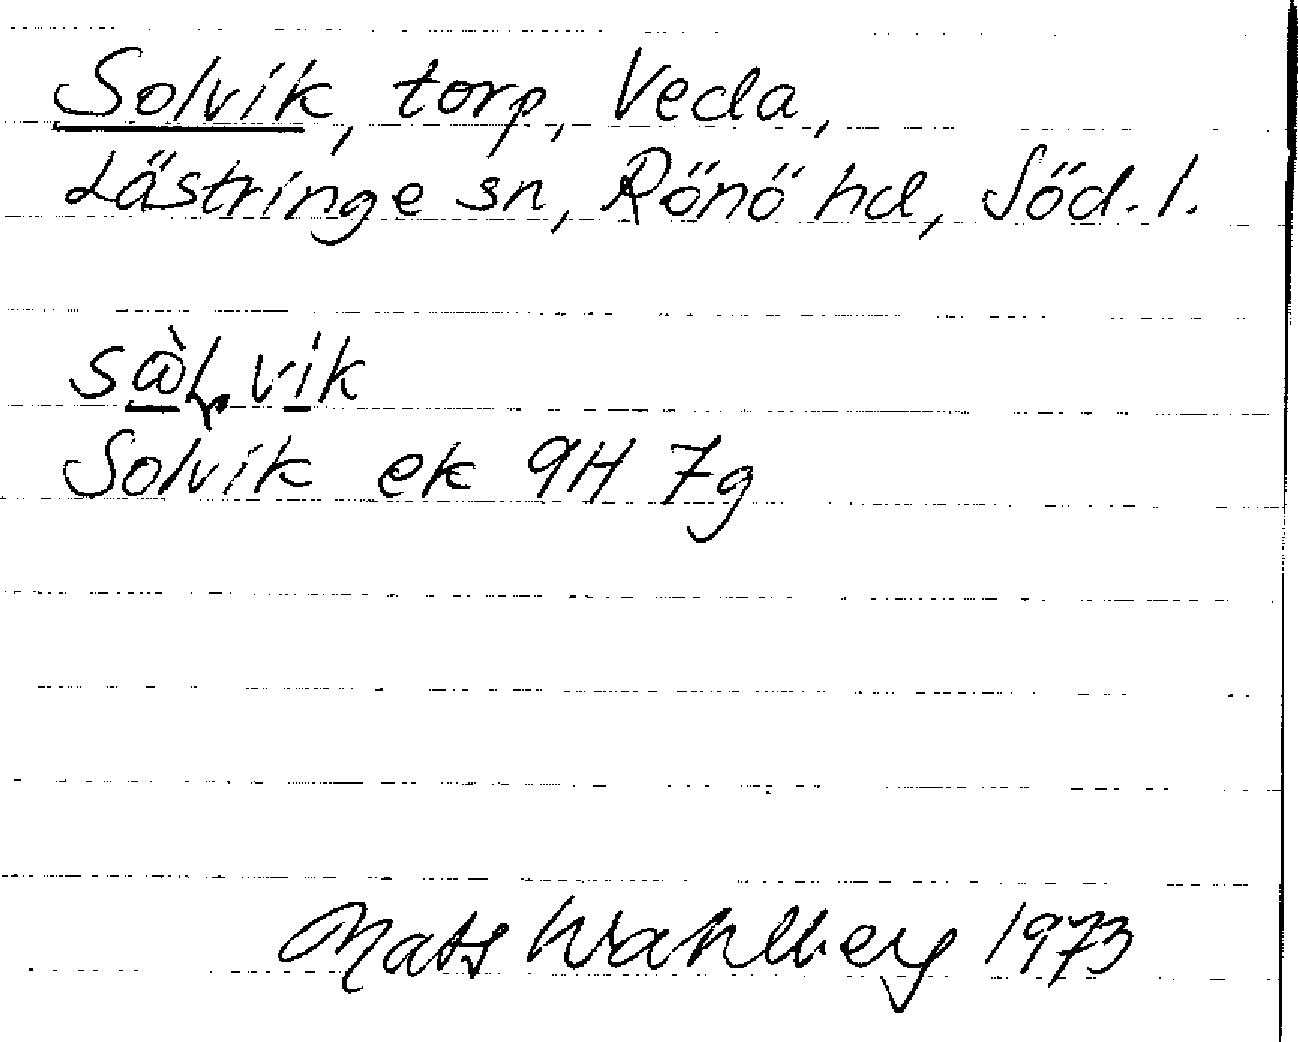 Solvik, torp, Veda,
Lästringe sn, Rönö hd, Söd. l.
Solvik ek 9H 7g
Mats Wahlberg 1973